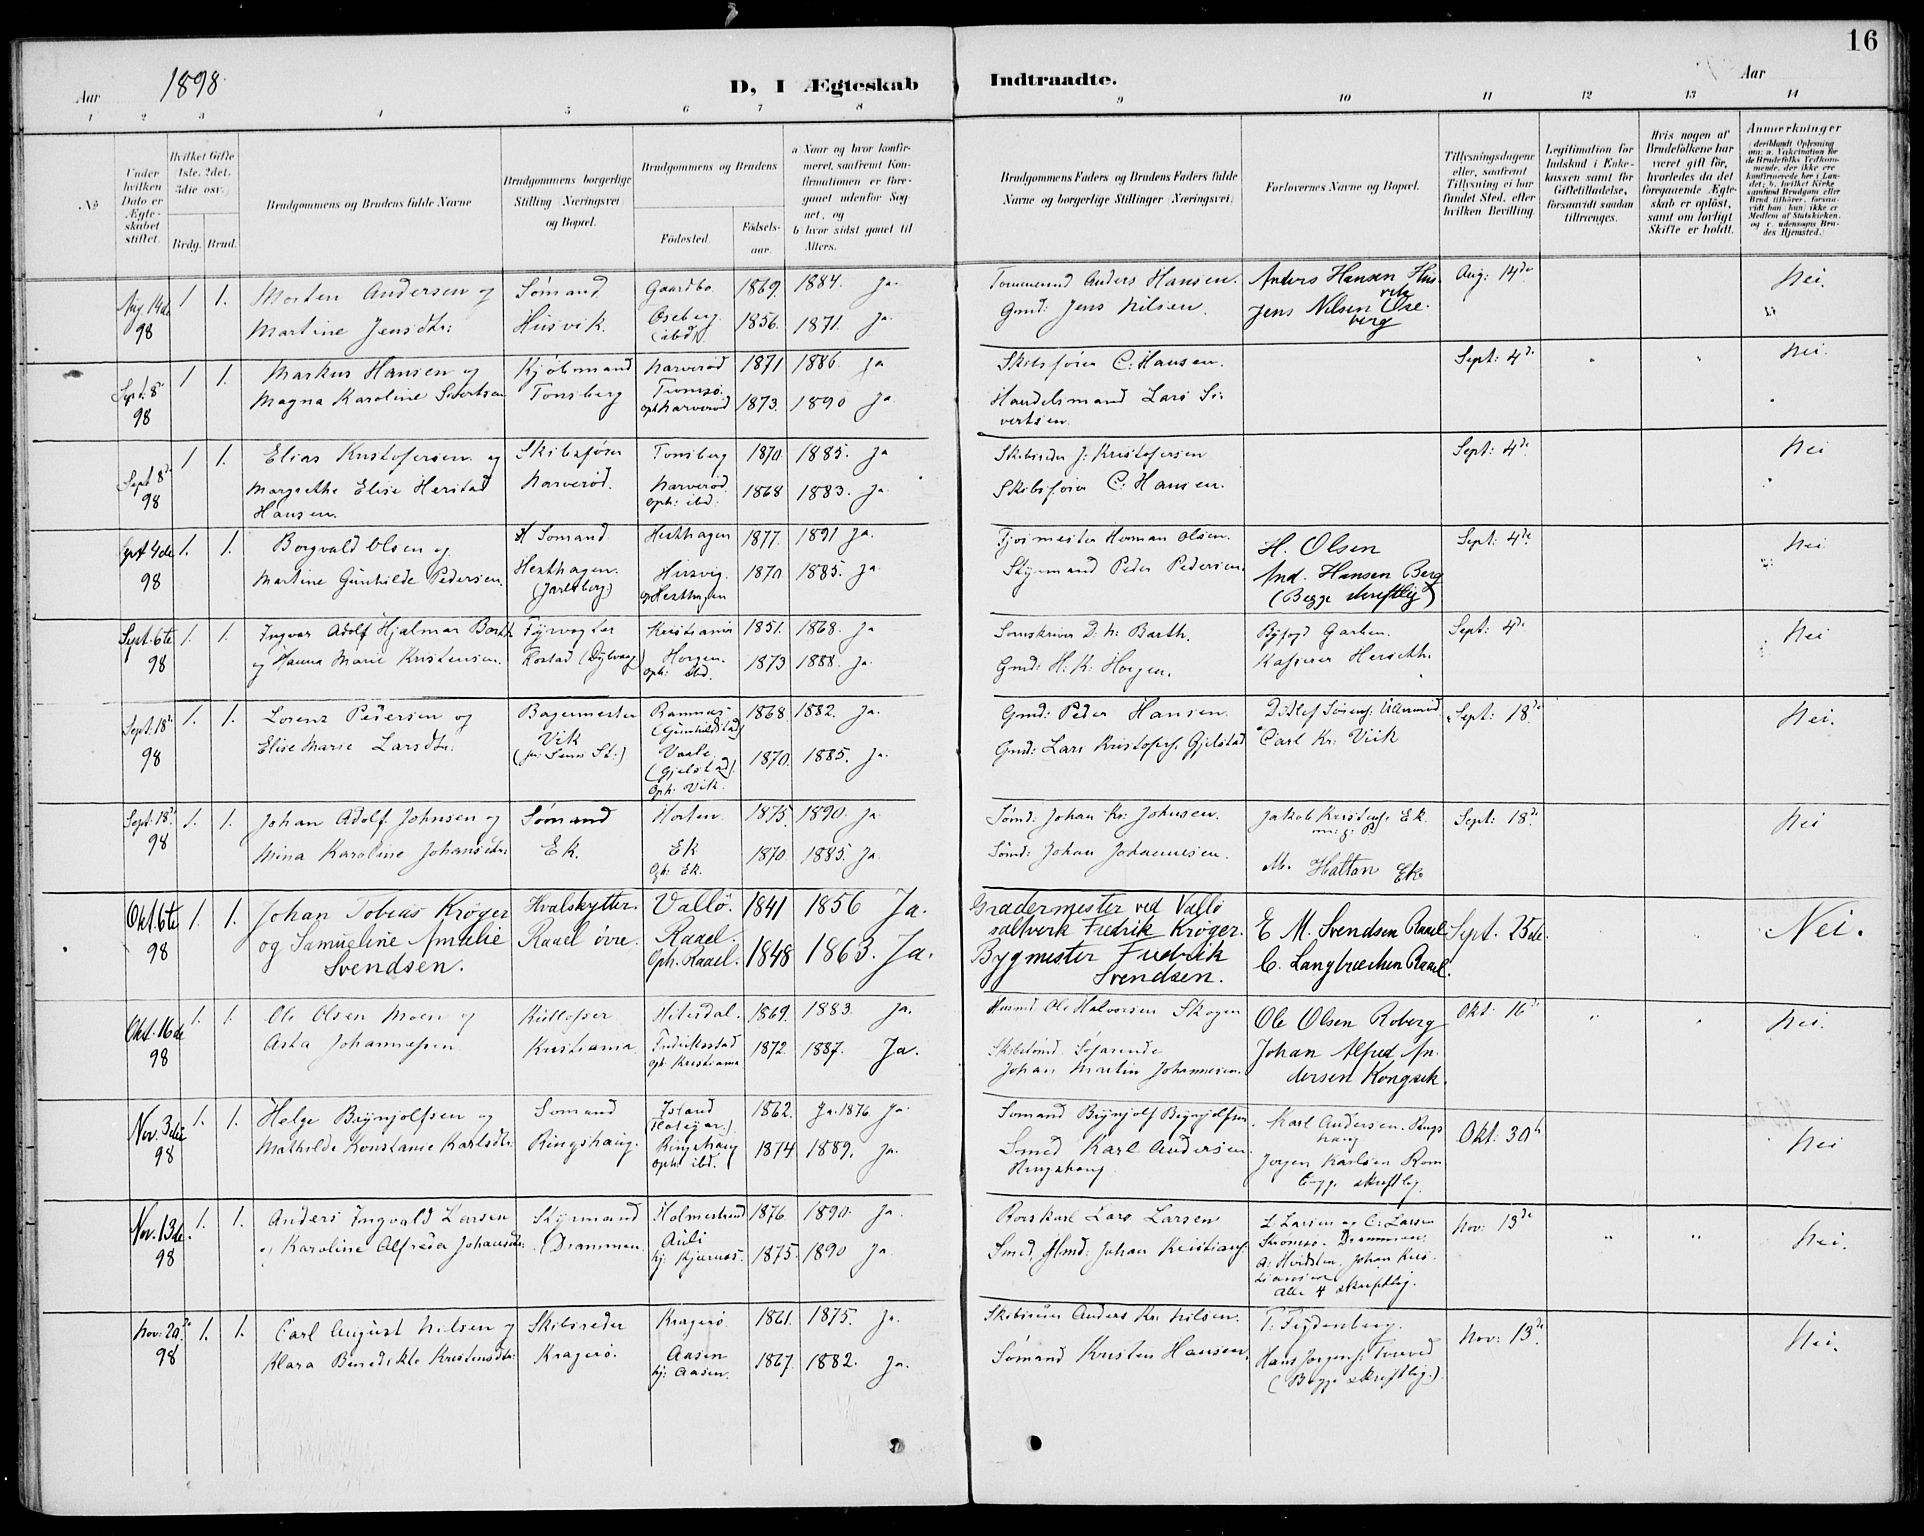 16
Aar 1898. D, I Ægteskab Indtraadte. Aar
1 2 3 4 5 6 7 8 9 10 11 12 13 14
No
Under hvilken Dato er Ægteskabet stiftet.
Hvilket Gifte 1ste, 2det, 3die osv.
Brdg. Brud.
Brudgommens og Brudens fulde Navne
Brudgommens borgerlige Stilling (Næringsvei) og Bopæl.
Brudgommens og Brudens
Fødested. Fødselsaar.
a Naar og hvor konfirmeret, saafremt Konfirmationen er foregaaet udenfor Sognet, og
b hvor sidst gaaet til Alters.
Brudgommens Faders og Brudens Faders fulde Navne og borgerlige Stillinger (Næringsvei)
Forlovernes Navne og Bopæl.
Tillysningsdagene eller, saafremt Tillysning ei har fundet Sted, efter hvilken Bevilling.
Legitimation for Indskud i Enkekassen samt for Giftetilladelse, forsaavidt saadan tiltrænges.
Hvis nogen af Brudefolkene har været gift før, hvorledes da det foregaaende Ægteskab er opløst, samt om lovligt Skifte er holdt.
Anmærkninger (deriblandt Oplysning om: a. Vakcination for de Brudefolks Vedkommende, der ikke ere konfirmerede her i Landet; b. hvilket Kirkesamfund Brudgom eller Brud tilhører, forsaavidt han (hun) ikke er Medlem af Statskirken, og c. udensogns Brudes Hjemsted.)
Aug. 14de 98 1 1. Morten Andersen og Sømand Gaardbo. 1869. 1884. Ja. Tømmermd Anders Hansen. Anders Hansen Husvik Aug: 14de Nei.
Martine Jensdtr: Husvik. Oseberg (ibd) 1856. 1871. Ja Gmd: Jens Nilsen. Jens Nilsen Oseberg
Sept. 8de 98 1 1. Markus Hansen og Kjøbmand Narverød 1871 1886. Ja Skibsfører C. Hansen. Sept: 4de Nei.
Magna Karoline Sivertsen Tønsberg Tromsø. oph Narverød 1873. 1890 Ja Handelsmand Lars Sivertsen.
Sept 8de 98 1 1. Elias Kristofersen og Skibsfører Tønsberg 1870. 1885. Ja Skibsreder J. Kristofersen Sept: 4de Nei
Margrethe Elise Herstad Hansen. Narverød. Narverød. oph: ibd. 1868 1883. Ja. Skibsfører C. Hansen.
Sept 4de 98 1. 1. Borgvald Olsen og Sømand Hesthagen 1877. 1891 Ja. Fjøsmester Herman Olsen. H. Olsen Sept: 4de Nei
Martine Gunhilde Pedersen. Hesthagen. (Jarlsberg) Husvig. op Hesthagen 1870 1885. Ja Styrmand Peder Pedersen. And. Hansen Berg (Begge skriftlig)
Sept. 6te 98 1 1. Ingvar Adolf Hjalmar Barth Fyrvogter Kristiania 1851. 1868. Ja Sorenskriver D. N. Barth. Byfogd Garben. Sept: 4de Nei
og Hanna Marie Kristensen. (Dybvaag) Horgen. oph: ibd. 1873 1888. Ja. Gmd: H. K. Horgen. Kasserer Herseth.
Sept. 18de 98 1. 1. Lorenz Pedersen og Bagermester Ramnæs (Gunhildstad) 1868. 1882. Ja. Gmd: Peder Hansen. Ditlef Sørens. Sept: 18de Nei.
Elise Marie Larsdtr: Vik Vaale. (Gjelstad) Oph: Vik. 1870. 1885. Ja. Gmd: Lars Kristofers. Gjelstad Carl Kr. Viik
Sept. 18de 98 1. 1. Johan Adolf Johnsen og Sømand Horten. 1875. 1890. Ja Sømd: Johan Kr: Johnsen. Jakob Kristens. Ek. m. p. P Sept: 18de Nei
Mina Karoline Johansdtr: Ek. Ek Oph: Ek. 1870 1885. Ja. Sømd: Johan Johannesen. M. Halton Ek
Okt. 6te 98 1. 1. Johan Tobias Krøger Hvalskytter. Vallö. 1841 1856 Ja. Gradermester ved Vallö saltverk Fredrik Krøger. E M. Svendsen Raael Sept. 25de. Nei.
og Samueline Amalie Svendsen. Raael övre. Raael. Oph. Raael. 1848 1863. Ja. Bygmester Fredrik Svendsen. C. Langbrækken Raael.
Okt. 16de 98 1. 1. Ole Olsen Moen og Kulloffer Hitterdal. 1869. 1883. Ja. Husmd. Ole Halvorsen Skogen Ole Olsen Roberg Okt: 16de Nei.
Asta Johannessen Kristiania. Fredriksstad oph. Kristiania 1872. 1887. Ja. Skibstømd. Søfarende Johan Martin Johannesen. Johan Alfred Andersen Kongsek.
Nov. 3die 98 1. 1. Helge Brynjolfsen og Sømand Island 1862. Ja. 1876 Ja Sømand Brynjolf Brynjolfsen. Karl Andersen. Ringshaug Okt. 30te Nei
Mathilde Konstanse Karlsdtr: Ringshaug. Ringshaug oph: ibd. 1874 1889. Ja. Smed Karl Andersen. Ringshaug Jørgen Karlsen Rom Begge skriftlig
Nov. 13de. 98 1. 1. Anders Ingvald Larsen Styrmand Holmestrand 1876. 1890. Ja. Lars Larsen L. Larsen og C. Larsen Nov: 13de Nei.
og Karoline Alfreda Johansdtr. (Drammen Auli hj: Kjærnæs. 1875. 1890 Ja Smed, Hmd: Johan Kristians. Strømsø. Drammen, A: Hvidsten. Johan Kristiansen Alle 4 skriftlig.
Nov: 20de 98 1. 1. Carl August Nilsen og Skibsreder Kragerø. 1861. 1875. Ja. Skibsreder Anders Kr. Nilsen. T. Fydenberg. Nov: 13de Nei.
Klara Benedikte Kristensdtr: Kragerø. Aasen hj: Aasen. 1867. 1882. Ja. Sømand Kristen Hansen. Hans Jørgens: Tveved (Begge skriftlig.)